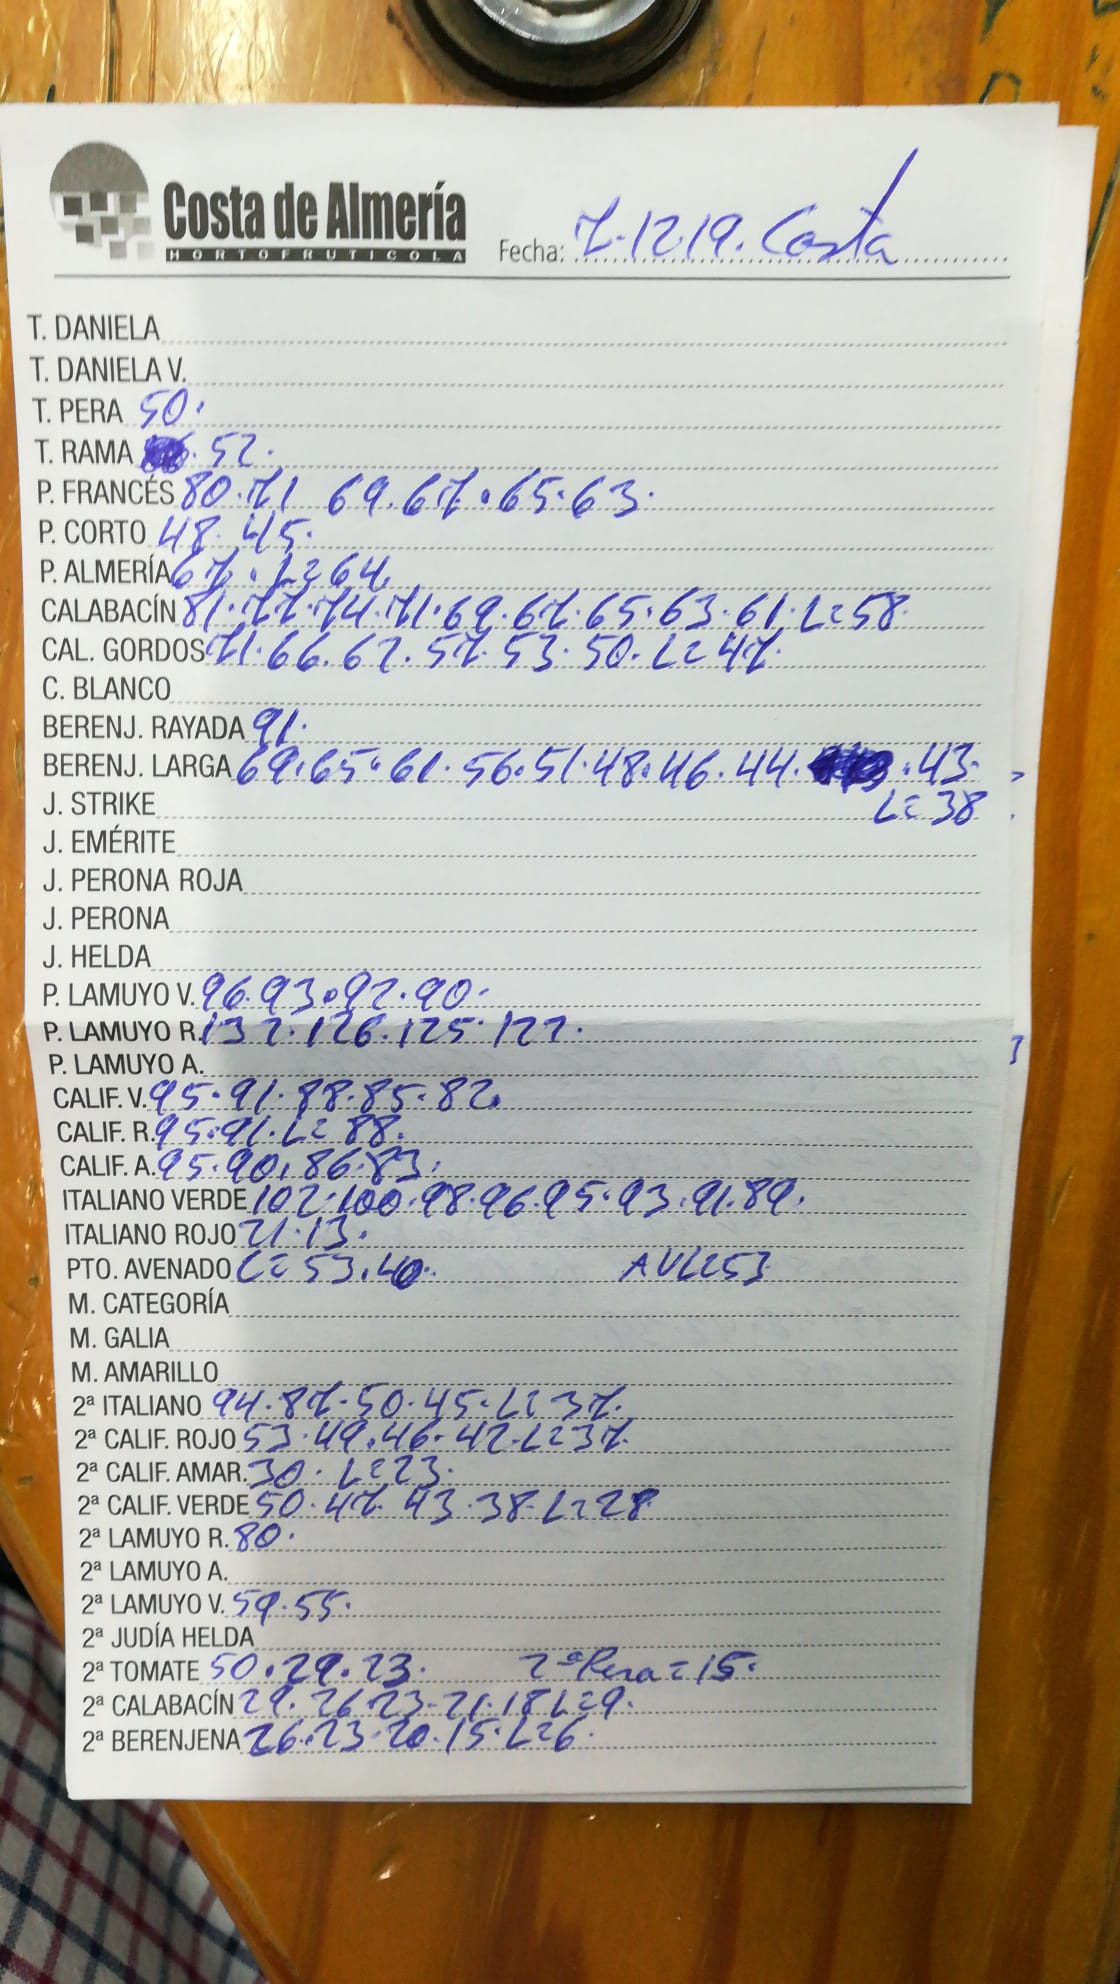 Costa de Almería
HORTOFRUTICOLA
Fecha: 7.12.19. Costa
T. DANIELA
T. DANIELA V.
T. PERA 50.
T. RAMA . 52.
P. FRANCÉS 80.71 69.67.65.63.
P. CORTO 48. 45.
P. ALMERÍA 67. L=64.
CALABACÍN 81.77.74.71.69.67.65.63.61.L=58
CAL. GORDOS 71.66.62.57.53.50.L=47.
C. BLANCO
BERENJ. RAYADA 91.
BERENJ. LARGA 69.65.61.56.51.48.46.44. .43.
J. STRIKE L=38
J. EMÉRITE
J. PERONA ROJA
J. PERONA
J. HELDA
P. LAMUYO V. 96.93.92.90.
P. LAMUYO R. 132.126.125.122.
P. LAMUYO A.
CALIF. V. 95.91.88.85.82.
CALIF. R. 95.91.L=88.
CALIF. A. 95.90.86.83.
ITALIANO VERDE 102.100.98.96.95.93.91.89.
ITALIANO ROJO 21.13.
PTO. AVENADO L=53.40. AVL=53
M. CATEGORÍA
M. GALIA
M. AMARILLO
2ª ITALIANO 94.87.50.45.L=37.
2ª CALIF. ROJO 53.49.46.42.L=37.
2ª CALIF. AMAR. 30. L=23.
2ª CALIF. VERDE 50.47. 43.38.L=28
2ª LAMUYO R. 80.
2ª LAMUYO A.
2ª LAMUYO V. 59.55.
2ª JUDÍA HELDA
2ª TOMATE 50.29.23. 2ª Pera=15.
2ª CALABACÍN 29. 26.23.21.18.L=9.
2ª BERENJENA 26.23.20.15.L=6.